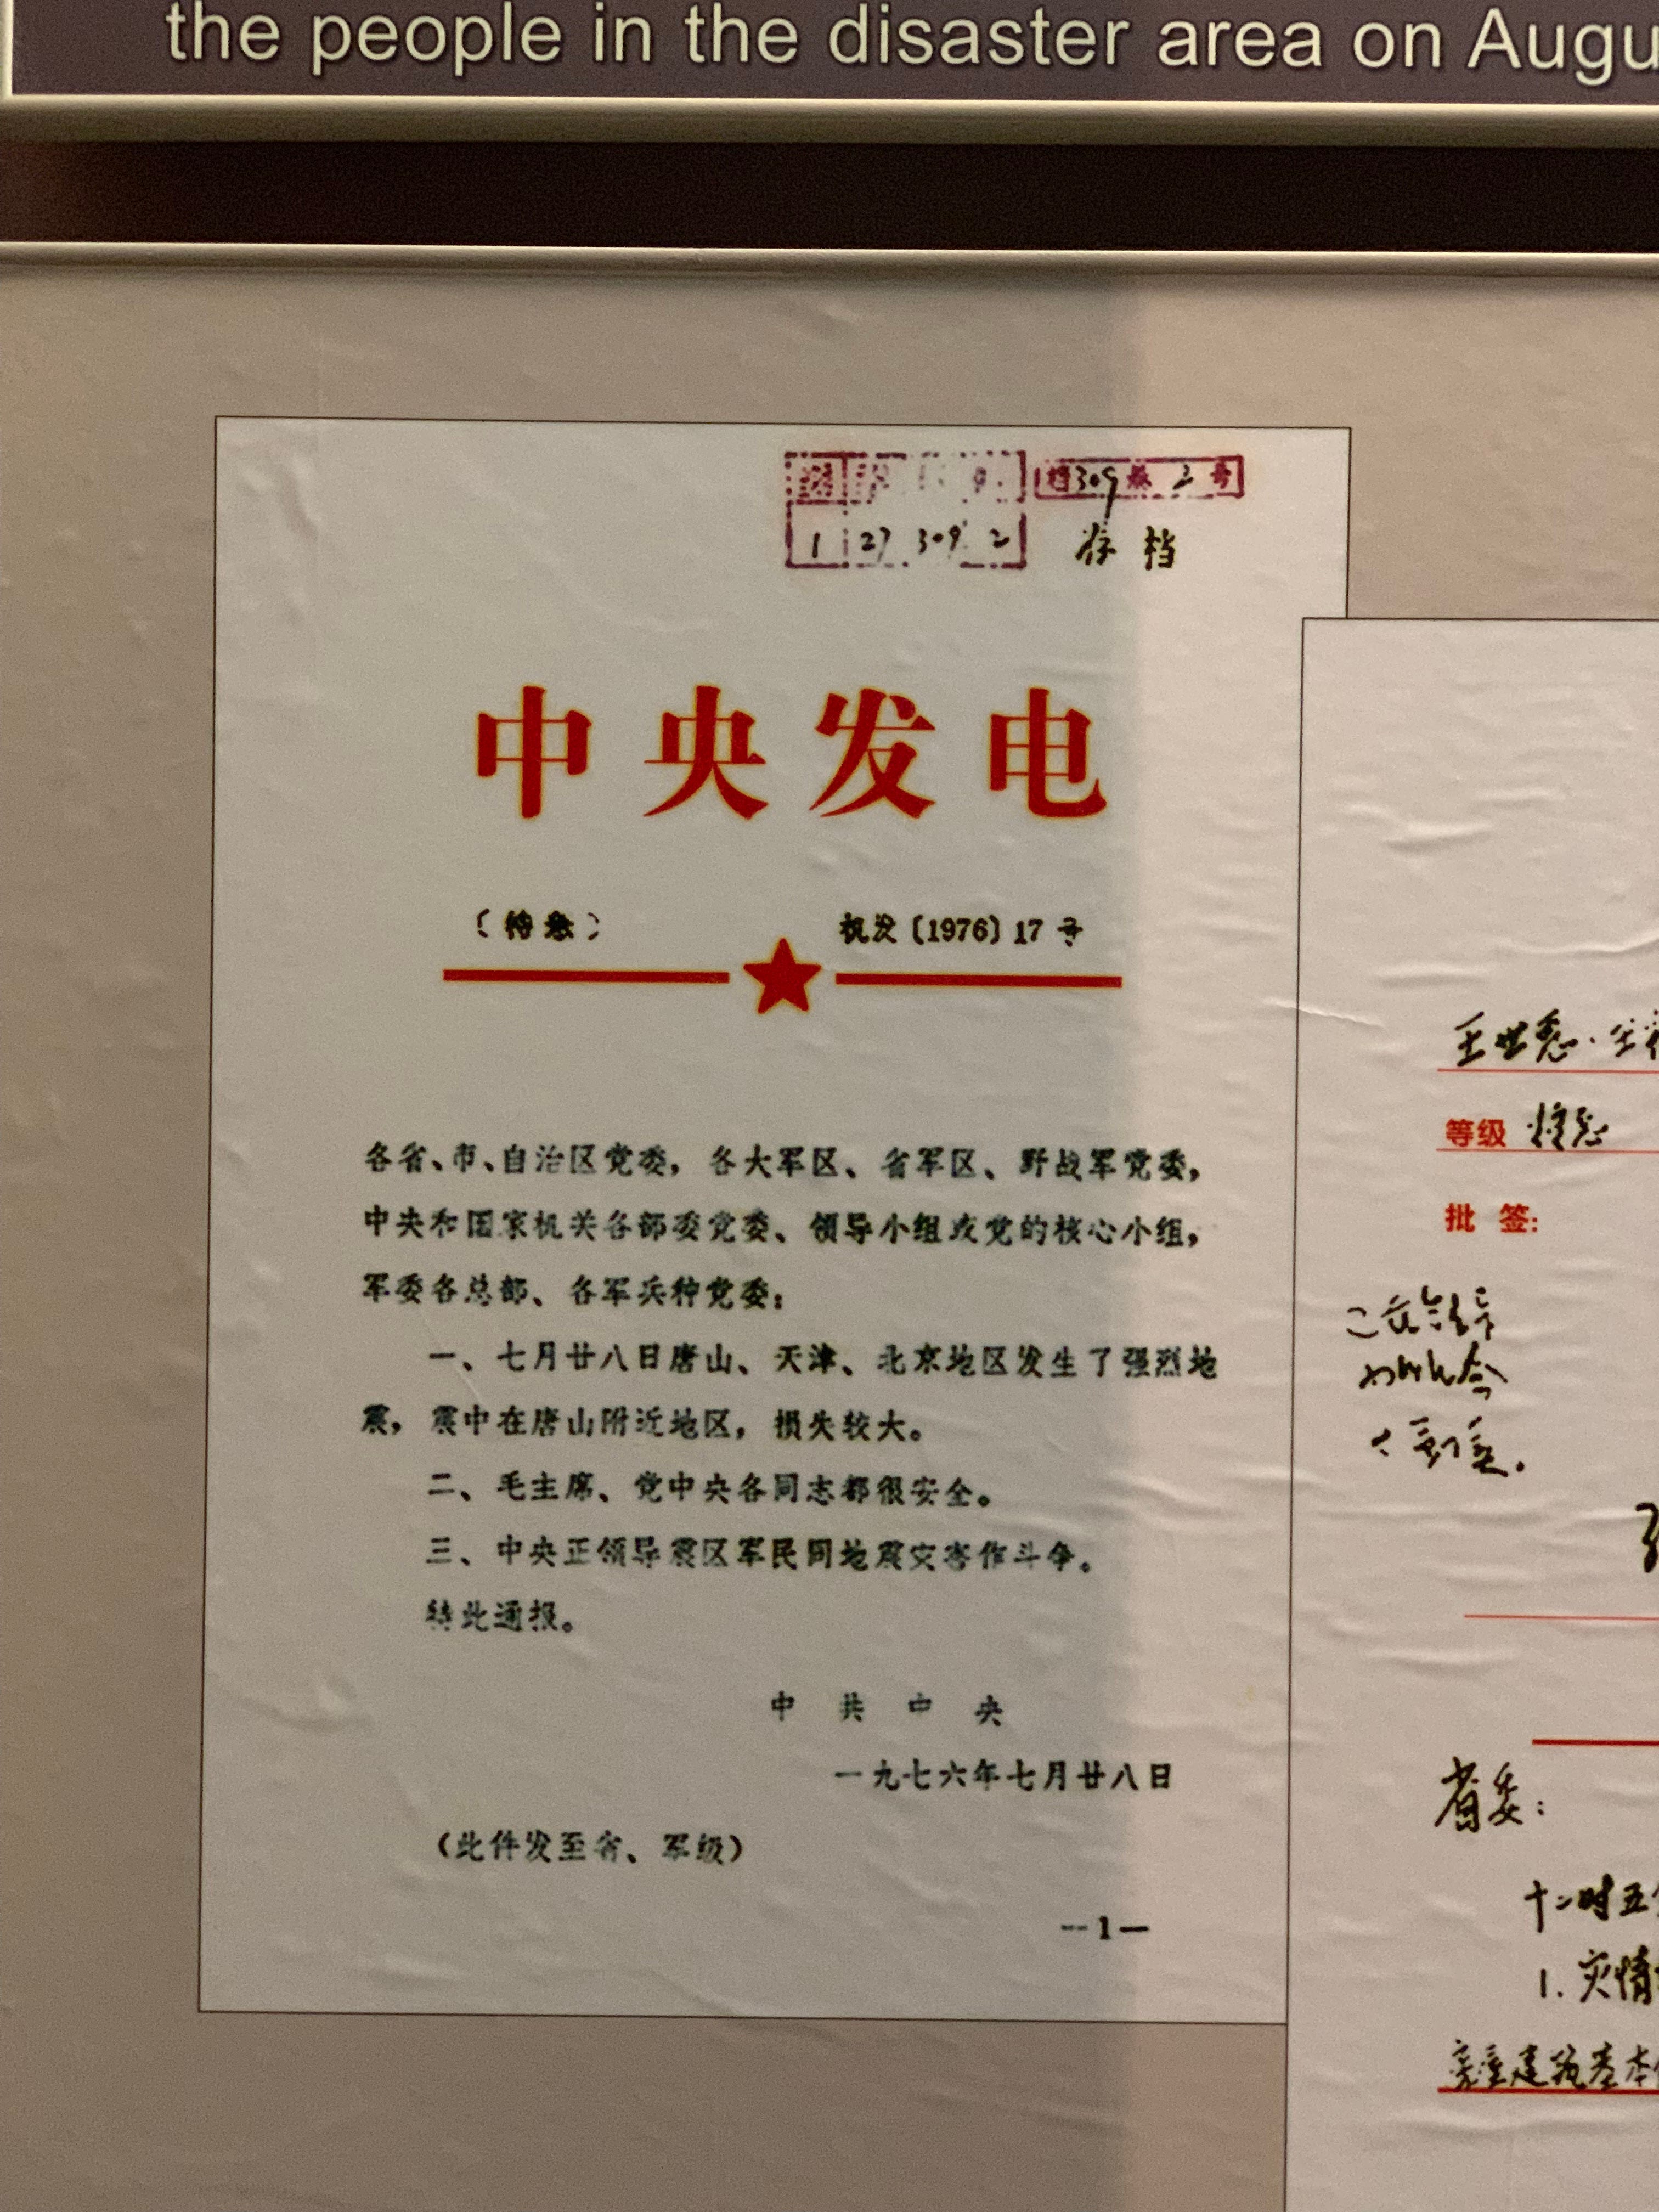 the people in the disaster area on Augu
档309 卷 2 号
1 27 309 2
存档
中央发电
〔特急〕
机发〔1976〕17号
各省、市、自治区党委，各大军区、省军区、野战军党委，
中央和国家机关各部委党委、领导小组或党的核心小组，
军委各总部、各军兵种党委：
一、七月廿八日唐山、天津、北京地区发生了强烈地
震，震中在唐山附近地区，损失较大。
二、毛主席、党中央各同志都很安全。
三、中央正领导震区军民同地震灾害作斗争。
特此通报。
中共中央
一九七六年七月廿八日
（此件发至省、军级）
—1—
等级 特急
批签：
省委：
十二时五
1. 灾情
房屋建筑基本